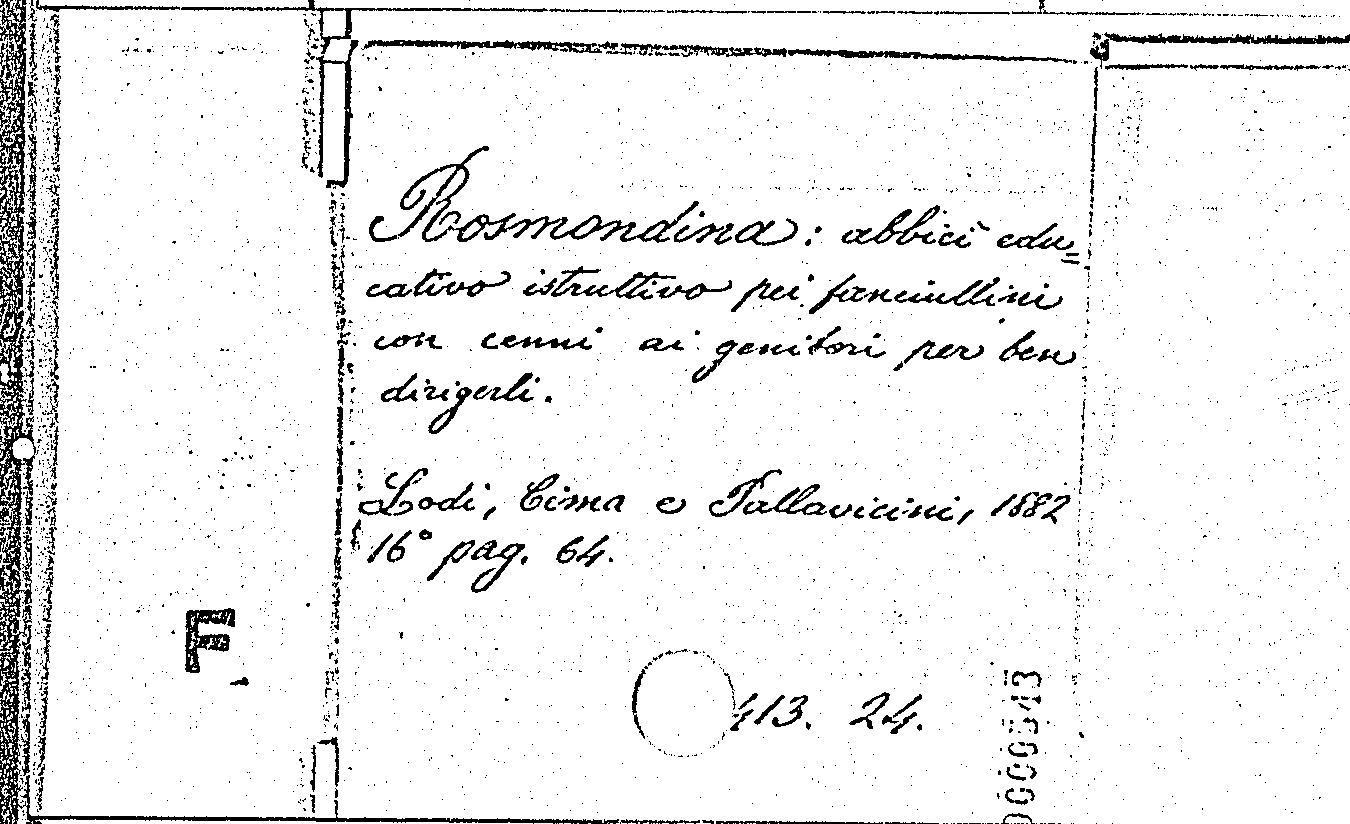 Rosmondina : abbicì edu=
cativo istruttivo pei fanciullini
con cenni ai genitori per ben
dirigerli.
Lodi, Cima e Pallavicini, 1882
16° pag. 64.
F
413. 24.